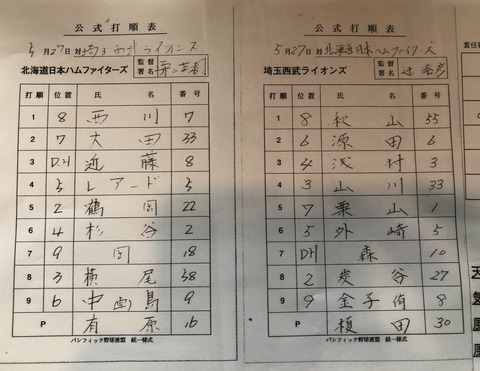 公式打順表
5月27日対埼玉西武ライオンズ
北海道日本ハムファイターズ 監督署名 栗山英樹
打順 位置 氏名 番号
1 8 西川 7
2 7 大田 33
3 DH 近藤 8
4 5 レアード 5
5 2 鶴岡 22
6 4 杉谷 2
7 9 岡 18
8 3 横尾 38
9 6 中島 9
P 有原 16
パシフィック野球連盟 統一様式
公式打順表
5月27日対北海道日本ハムファイターズ
埼玉西武ライオンズ 監督署名 辻発彦
打順 位置 氏名 番号
1 8 秋山 55
2 6 源田 6
3 4 浅村 3
4 3 山川 33
5 7 栗山 1
6 5 外崎 5
7 DH 森 10
8 2 炭谷 27
9 9 金子侑 8
P 榎田 30
パシフィック野球連盟 統一様式
責任審